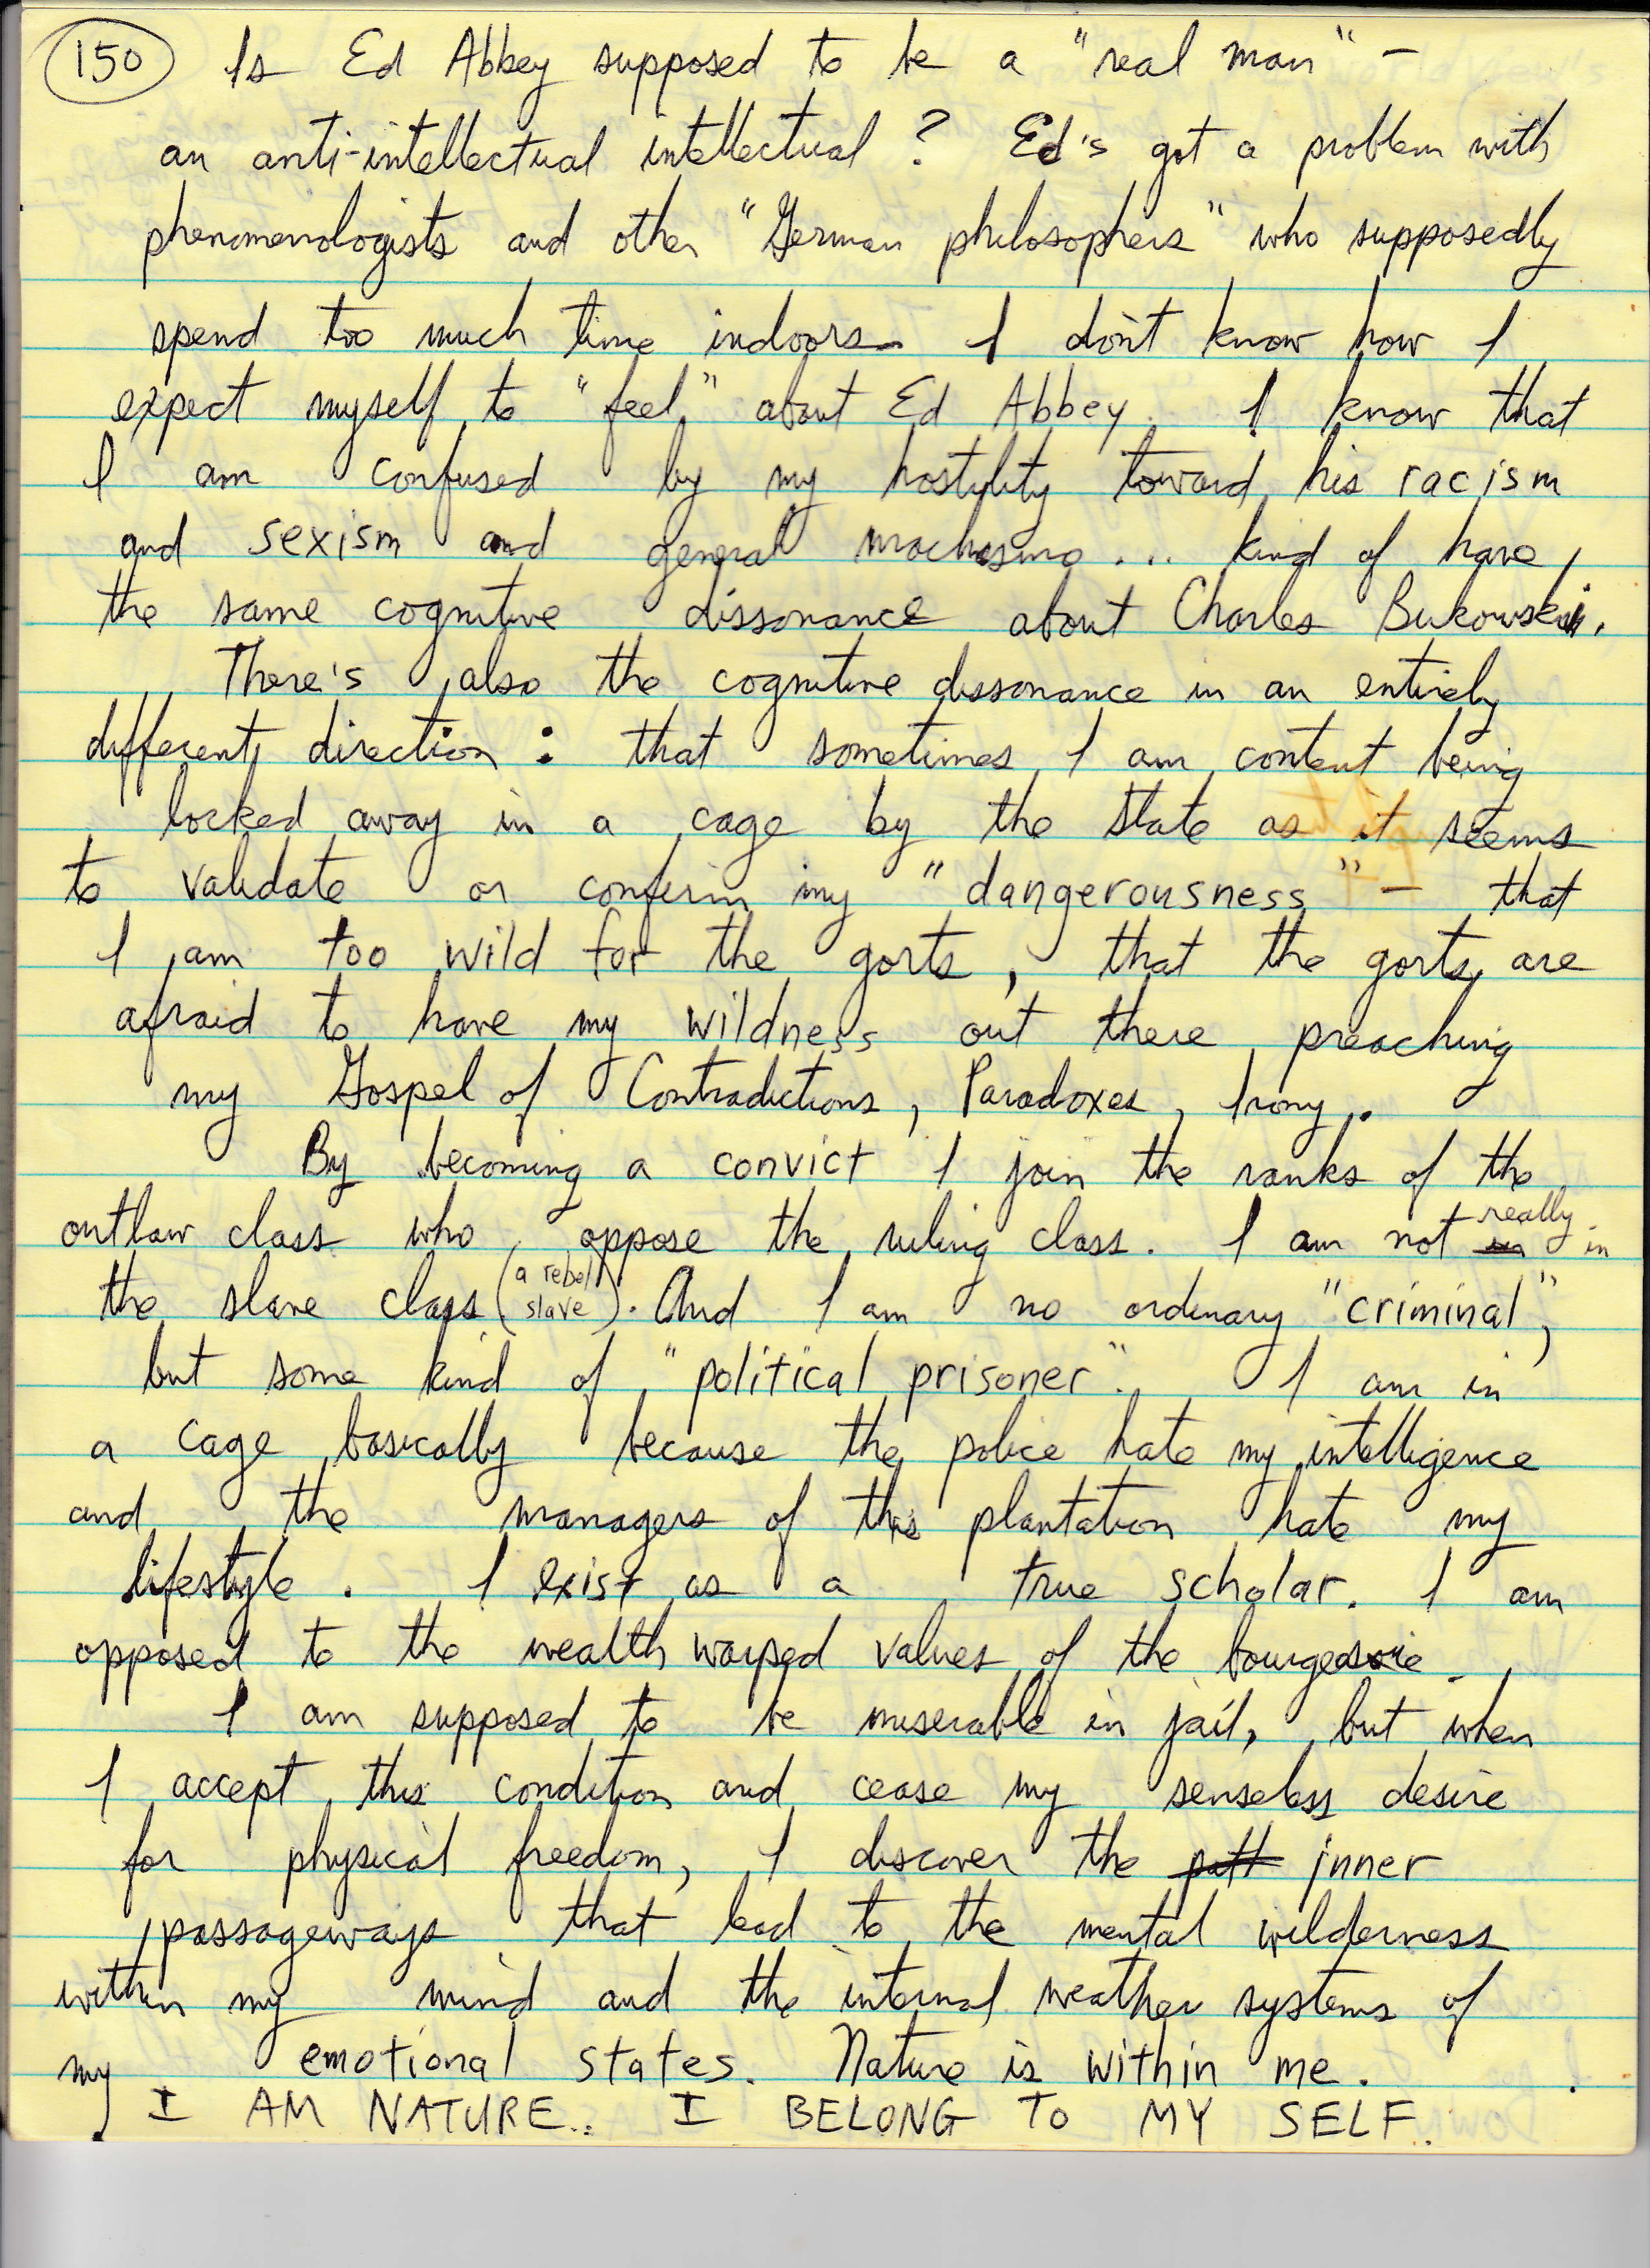 150 Is Ed Abbey supposed to be a "real man" –
an anti-intellectual intellectual? Ed's got a problem with
phenomenologists and other "German philosophers" who supposedly
spend too much time indoors. I don't know how I
expect myself to "feel" about Ed Abbey. I know that
I am confused by my hostylity toward his racism
and sexism and general machismo... kind of have
the same cognitive dissonance about Charles Bukowski.
There's also the cognitive dissonance in an entirely
different direction: that sometimes I am content being
locked away in a cage by the State as it seems
to validate or confirm my "dangerousness" – that
I am too wild for the gorts, that the gorts are
afraid to have my wildness out there preaching
my Gospel of Contradictions, Paradoxes, Irony.
By becoming a convict I join the ranks of the
outlaw class who oppose the ruling class. I am not really in
the slave class (a rebel slave). And I am no ordinary "criminal",
but some kind of "political prisoner". I am in
a cage basically because the police hate my intelligence
and the managers of this plantation hate my
lifestyle. I exist as a true scholar. I am
opposed to the wealth warped values of the bourgeosie.
I am supposed to be miserable in jail, but when
I accept this condition and cease my senseless desire
for physical freedom, I discover the path inner
passageways that lead to the mental wilderness
within my mind and the internal weather systems of
my emotional states. Nature is within me.
I AM NATURE. I BELONG TO MY SELF.